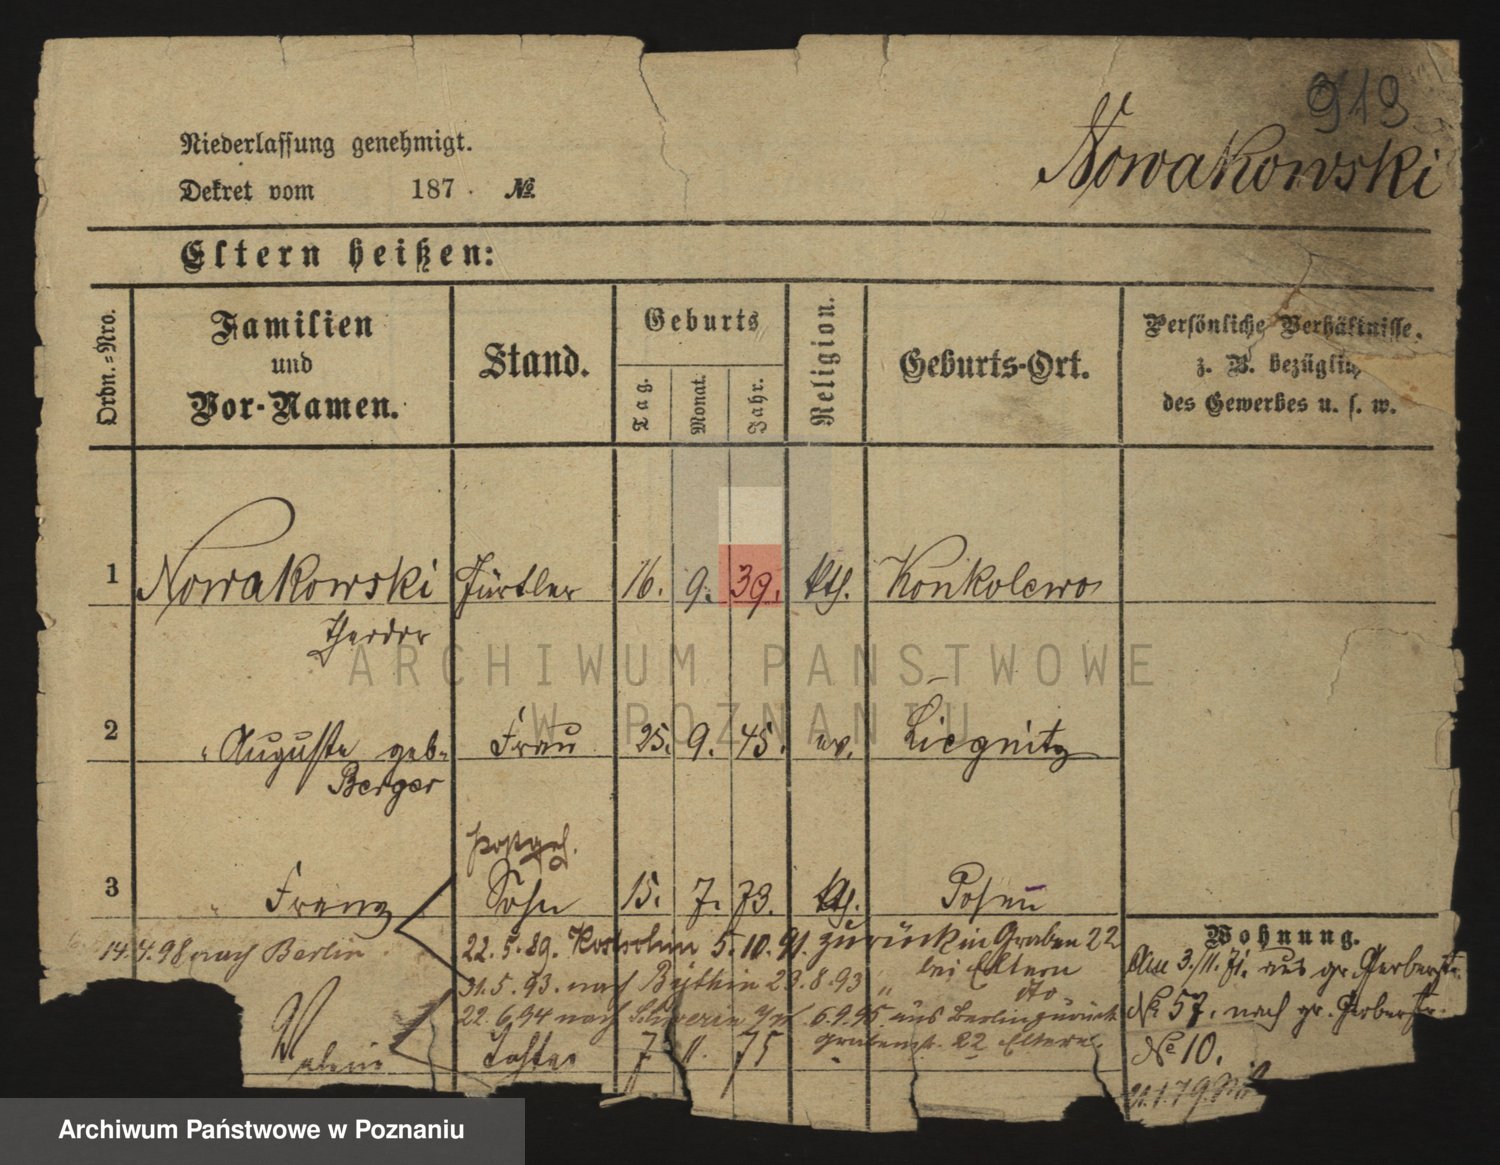 919
Nowakowski
Niederlassung genehmigt.
Dekret vom 187 . №
Eltern heißen:
Ordn.=Nro.
Familien
und
Vor-Namen.
Stand.
Geburts
Tag.
Monat.
Jahr.
Religion.
Geburts-Ort.
Persönliche Verhältnisse,
z. B. bezüglich
des Gewerbes u. s. w.
1 Nowakowski 16. 9. 39. kth. Konkolewo
Theodor
ARCHIWUM PAŃSTWOWE
W POZNANIU
2 " Auguste geb. Frau 25. 9. 45. ev. Liegnitz
Berger
3 " Franz Sohn 15. 7. 73. kth. Posen
Wohnung.
14.4.98 nach Berlin
22.5.89. 5.10.91. zurück in Graben 22
bei Eltern
31.5.93. nach 29.8.93 " dto
22.6.94 nach Schwerin 6.9.95. aus Berlin zurück
Grabenstr. 22 Eltern
Tochter 7 11. 75
No 57. nach gr. Gerberstr.
No 10.
21.1.79.
Archiwum Państwowe w Poznaniu